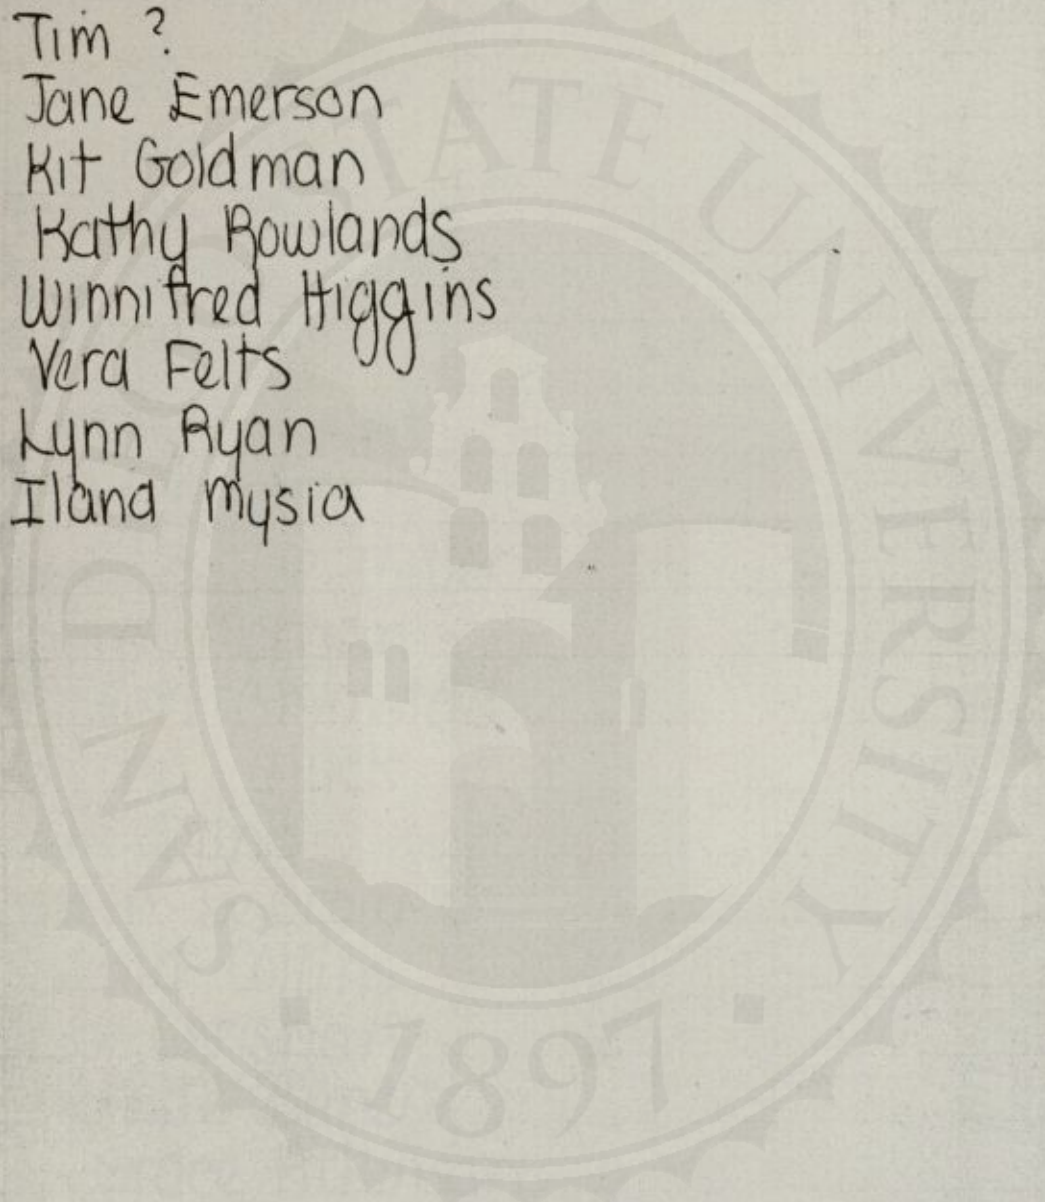 Tim ?
Jane Emerson
Kit Goldman
Kathy Rowlands
Winnifred Higgins
Vera Felts
Lynn Ryan
Ilana Mysia
SAN DIEGO STATE UNIVERSITY
1897